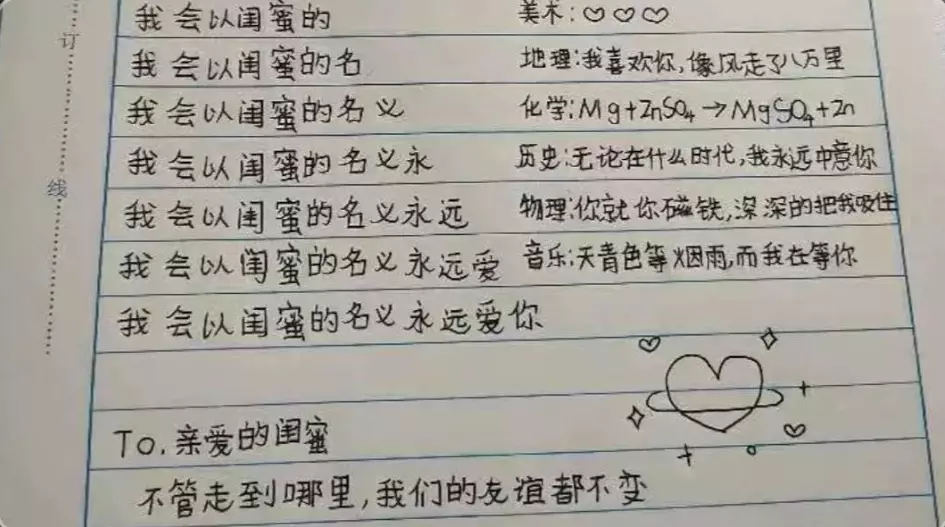 订
线
我会以闺蜜的
美术:♡♡♡
我会以闺蜜的名
地理:我喜欢你,像风走了八万里
我会以闺蜜的名义
化学:Mg+ZnSO₄→MgSO₄+Zn
我会以闺蜜的名义永
历史:无论在什么时代,我永远中意你
我会以闺蜜的名义永远
物理:你就你磁铁,深深的把我吸住
我会以闺蜜的名义永远爱
音乐:天青色等烟雨,而我在等你
我会以闺蜜的名义永远爱你
To.亲爱的闺蜜
不管走到哪里,我们的友谊都不变